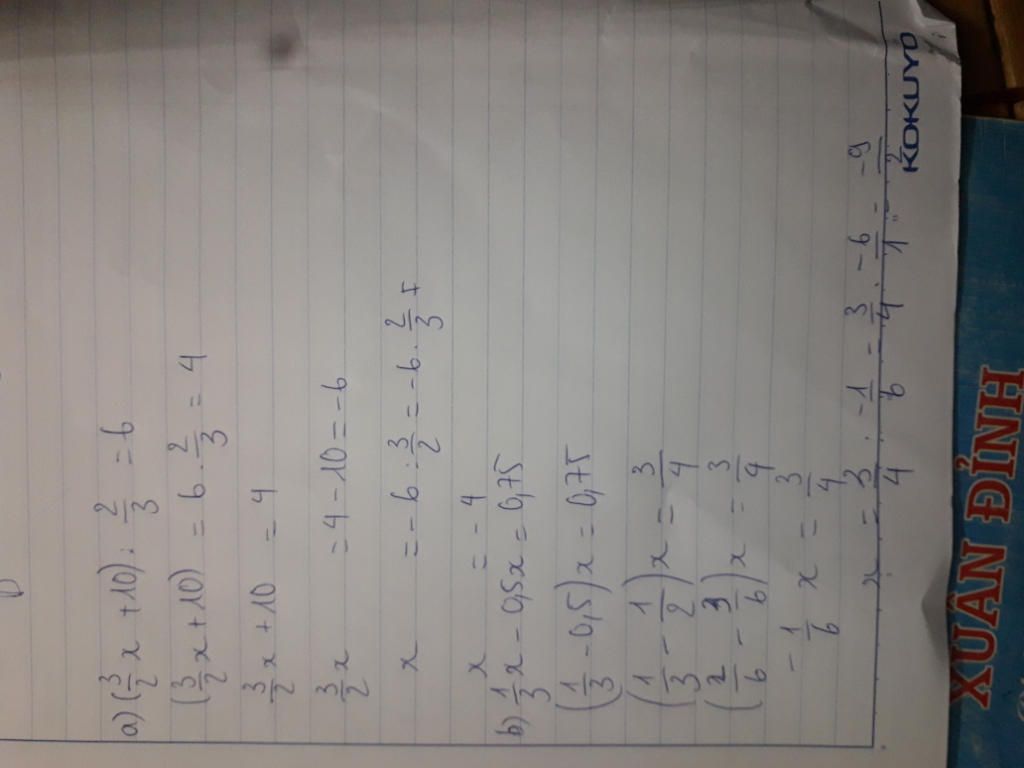 a) (3/2 x + 10) : 2/3 = 6
(3/2 x + 10) = 6 . 2/3 = 4
3/2 x + 10 = 4
3/2 x = 4 - 10 = -6
x = -6 : 3/2 = -6 . 2/3
x = -4
b) 1/3 x - 0,5x = 0,75
(1/3 - 0,5) x = 0,75
(1/3 - 1/2) x = 3/4
(2/6 - 3/6) x = 3/4
-1/6 x = 3/4
x = 3/4 : -1/6 = 3/4 . -6/1 = -9/2
KOKUYO
XUÂN ĐỈNH